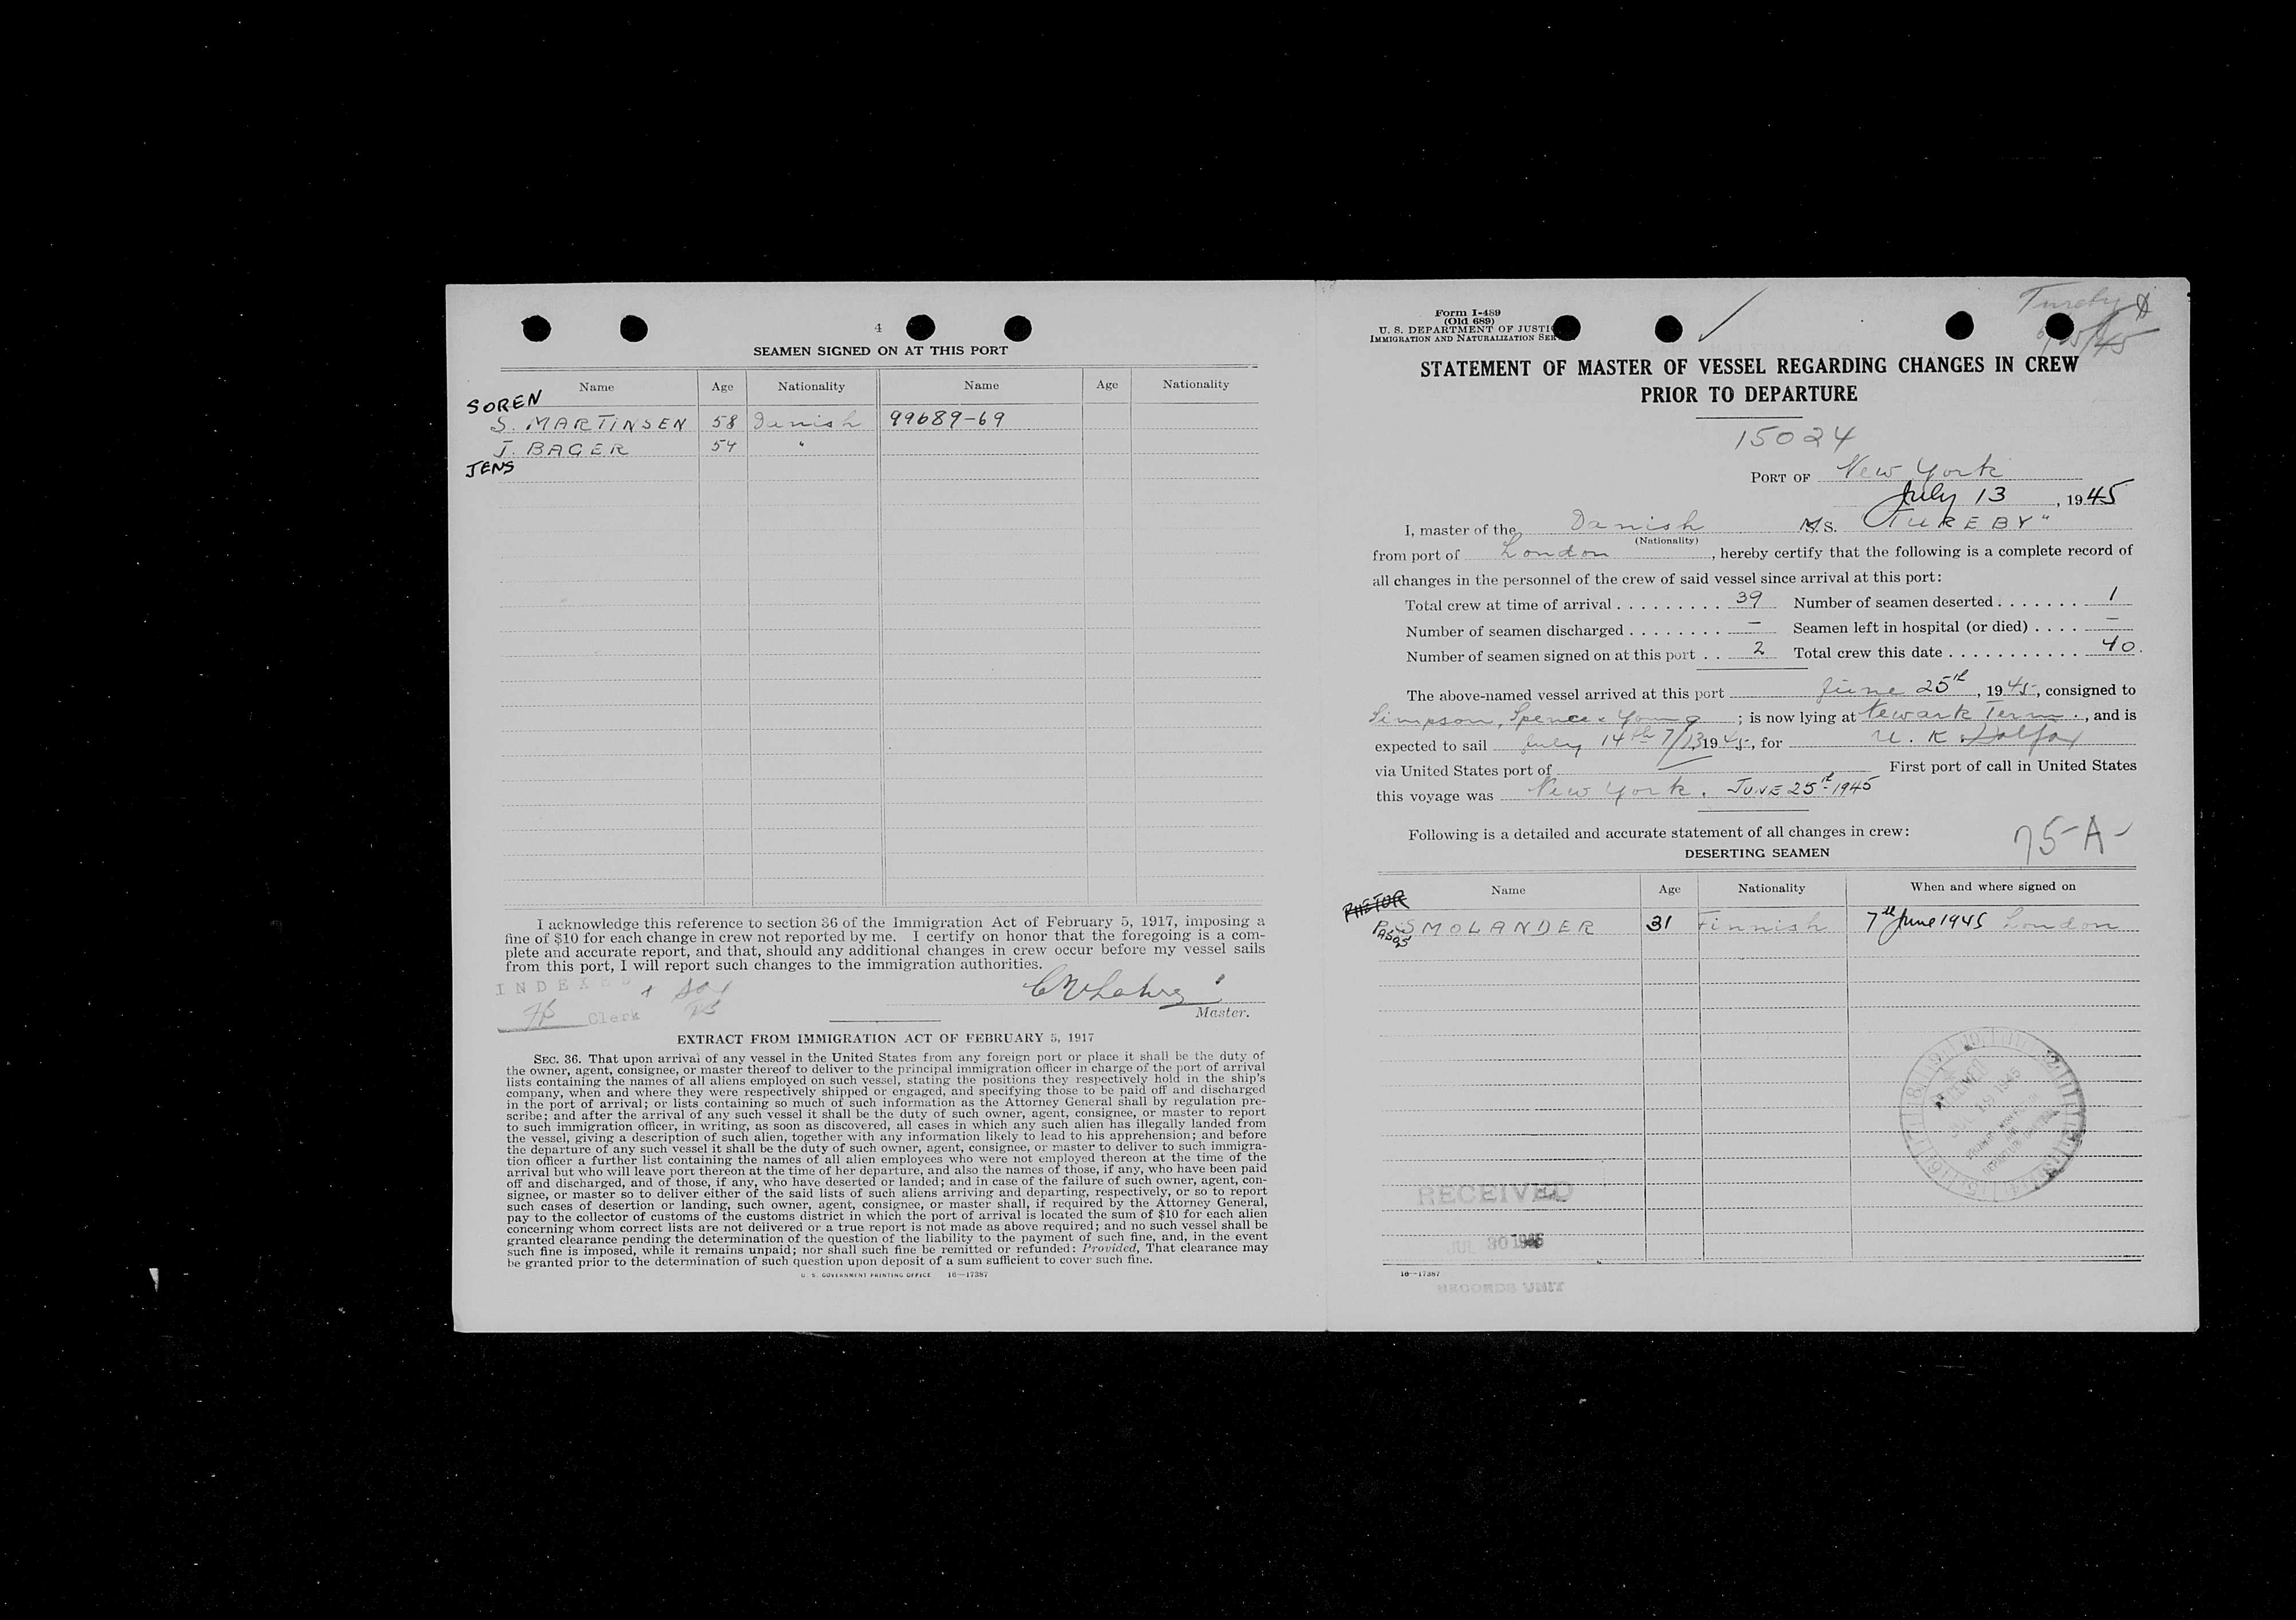 4
SEAMEN SIGNED ON AT THIS PORT
Name Age Nationality Name Age Nationality
SOREN
S. MARTINSEN 58 Danish 99689-69
J. BAGER 54 "
JENS
I acknowledge this reference to section 36 of the Immigration Act of February 5, 1917, imposing a
fine of $10 for each change in crew not reported by me. I certify on honor that the foregoing is a com-
plete and accurate report, and that, should any additional changes in crew occur before my vessel sails
from this port, I will report such changes to the immigration authorities.
INDEXED
Clerk
Master.
EXTRACT FROM IMMIGRATION ACT OF FEBRUARY 5, 1917
SEC. 36. That upon arrival of any vessel in the United States from any foreign port or place it shall be the duty of
the owner, agent, consignee, or master thereof to deliver to the principal immigration officer in charge of the port of arrival
lists containing the names of all aliens employed on such vessel, stating the positions they respectively hold in the ship's
company, when and where they were respectively shipped or engaged, and specifying those to be paid off and discharged
in the port of arrival; or lists containing so much of such information as the Attorney General shall by regulation pre-
scribe; and after the arrival of any such vessel it shall be the duty of such owner, agent, consignee, or master to report
to such immigration officer, in writing, as soon as discovered, all cases in which any such alien has illegally landed from
the vessel, giving a description of such alien, together with any information likely to lead to his apprehension; and before
the departure of any such vessel it shall be the duty of such owner, agent, consignee, or master to deliver to such immigra-
tion officer a further list containing the names of all alien employees who were not employed thereon at the time of the
arrival but who will leave port thereon at the time of her departure, and also the names of those, if any, who have been paid
off and discharged, and of those, if any, who have deserted or landed; and in case of the failure of such owner, agent, con-
signee, or master so to deliver either of the said lists of such aliens arriving and departing, respectively, or so to report
such cases of desertion or landing, such owner, agent, consignee, or master shall, if required by the Attorney General,
pay to the collector of customs of the customs district in which the port of arrival is located the sum of $10 for each alien
concerning whom correct lists are not delivered or a true report is not made as above required; and no such vessel shall be
granted clearance pending the determination of the question of the liability to the payment of such fine, and, in the event
such fine is imposed, while it remains unpaid; nor shall such fine be remitted or refunded: Provided, That clearance may
be granted prior to the determination of such question upon deposit of a sum sufficient to cover such fine.
U. S. GOVERNMENT PRINTING OFFICE 16—17387
Form I-489
(Old 689)
U. S. DEPARTMENT OF JUSTI
IMMIGRATION AND NATURALIZATION SER
Tureby
6/25/45
STATEMENT OF MASTER OF VESSEL REGARDING CHANGES IN CREW
PRIOR TO DEPARTURE
15024
PORT OF New York
July 13, 1945
I, master of the Danish M.S. "TUREBY"
(Nationality)
from port of London, hereby certify that the following is a complete record of
all changes in the personnel of the crew of said vessel since arrival at this port:
Total crew at time of arrival . . . . . . . . . 39 Number of seamen deserted . . . . . . . 1
Number of seamen discharged . . . . . . . . — Seamen left in hospital (or died) . . . . —
Number of seamen signed on at this port . . 2 Total crew this date . . . . . . . . . . . . 40.
The above-named vessel arrived at this port June 25th, 1945, consigned to
Simpson, Spence & Young; is now lying at Newark Term., and is
expected to sail July 14th 7/13 1945, for U. K. Halifax
via United States port of — First port of call in United States
this voyage was New York. JUNE 25th 1945
Following is a detailed and accurate statement of all changes in crew:
75-A-
DESERTING SEAMEN
Name Age Nationality When and where signed on
P. SMOLANDER 31 Finnish 7th June 1945 London
RECEIVED
JUL 30 1945
RECORDS UNIT
16—17387